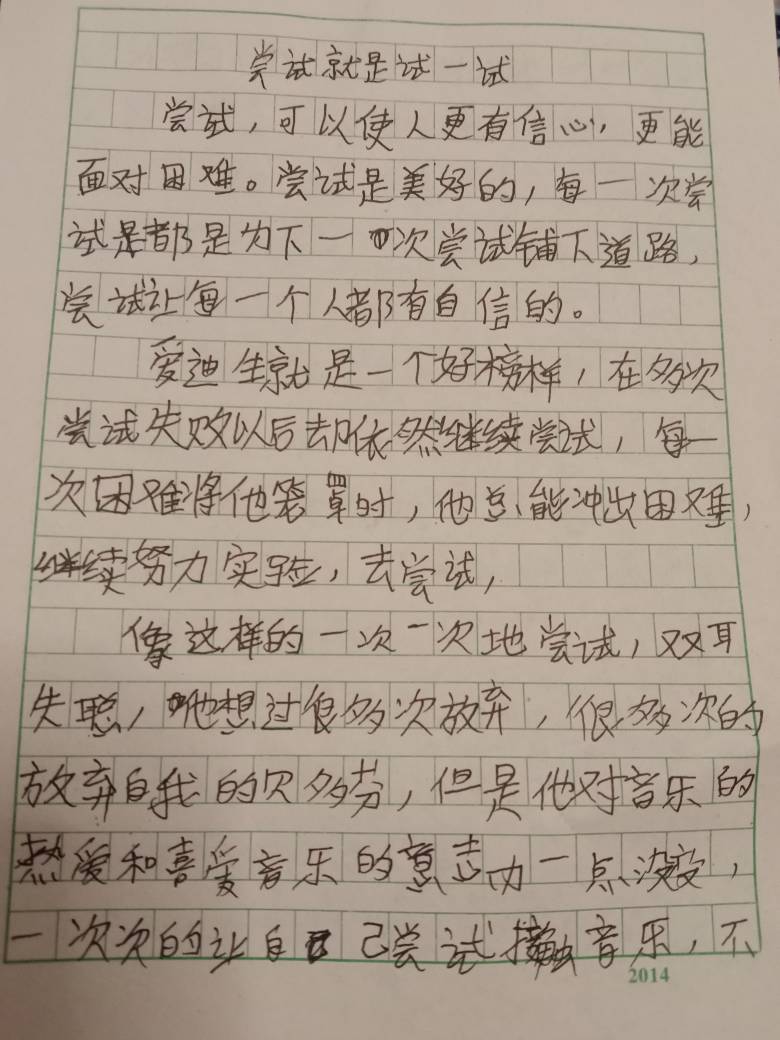 尝试就是试一试
尝试，可以使人更有信心，更能
面对困难。尝试是美好的，每一次尝
试是都是为下一次尝试铺下道路，
尝试让每一个人都有自信的。
爱迪生就是一个好榜样，在多次
尝试失败以后却依然继续尝试，每一
次困难将他笼罩时，他总能冲出困难，
继续努力实验，去尝试，
像这样的一次一次地尝试，双耳
失聪，他想过很多次放弃，很多次的
放弃自我的贝多芬，但是他对音乐的
热爱和喜爱音乐的意志力一点没变，
一次次的让自己尝试接触音乐，不
2014